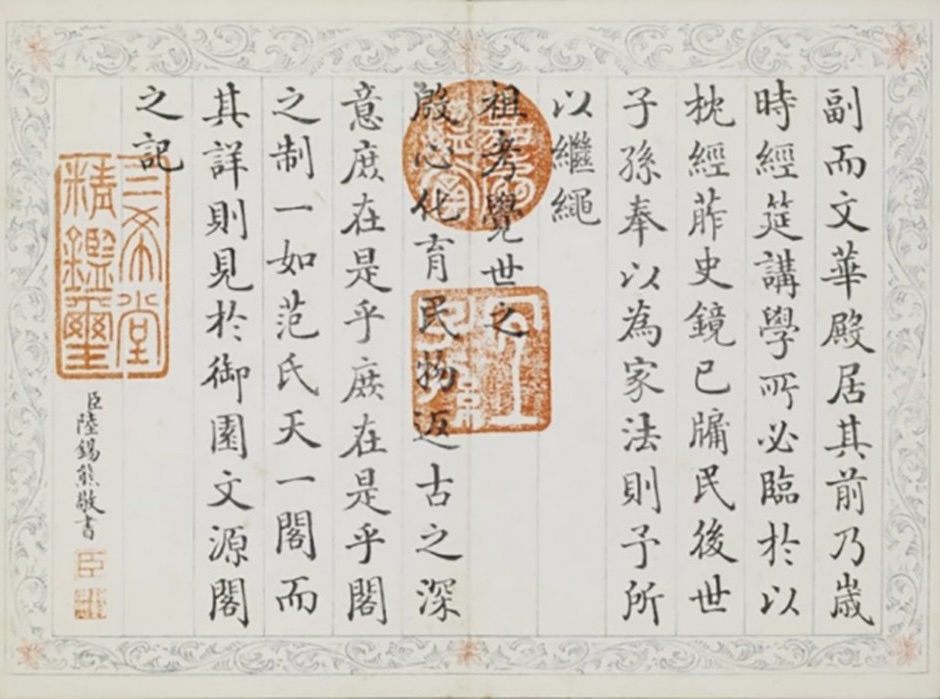 副而文華殿居其前乃歲
時經筵講學所必臨於以
枕經葄史鏡已牖民後世
子孫奉以為家法則予所
以繼繩
祖考覺世之
殷心化育民物返古之深
意庶在是乎庶在是乎閣
之制一如范氏天一閣而
其詳則見於御園文源閣
之記
三希堂
精鑑璽
宜
子孫
臣陸錫熊敬書
臣